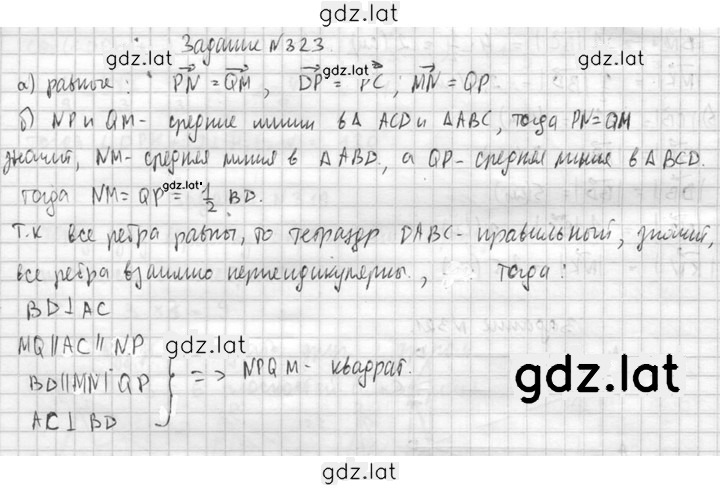 gdz.lat
Задание N323.
gdz.lat
а) равные: PN = QM, DP = PC, MN = QP
gdz.lat
б) NP и QM - средние линии в Δ ACD и ΔABC, тогда PN = QM
значит, NM - средняя линия в ΔABD, а QP - средняя линия в ΔBCD.
тогда NM = QP = 1/2 BD.
gdz.lat
Т.к все ребра равны, то тетраэдр DABC - правильный, значит,
все ребра взаимно перпендикулярны, тогда:
BD⊥AC
MQ||AC||NP
gdz.lat
BD||MN| QP
=> NPQM - квадрат.
gdz.lat
AC⊥BD
gdz.lat